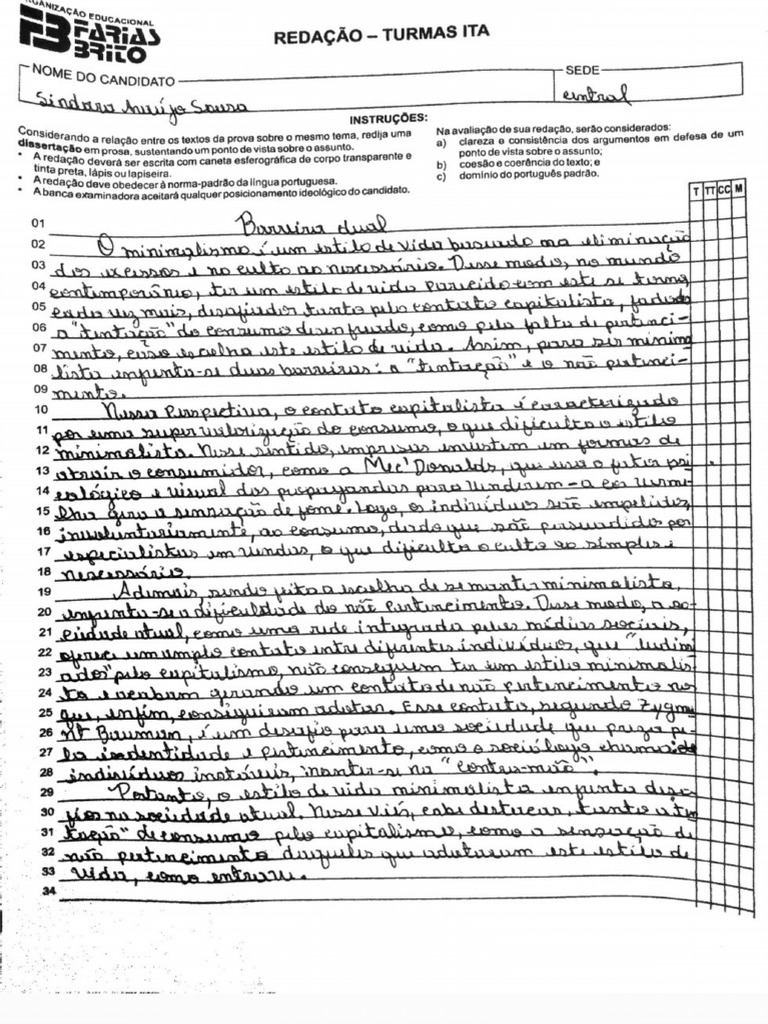 ORGANIZAÇÃO EDUCACIONAL
FB FARIAS
BRITO
REDAÇÃO – TURMAS ITA
NOME DO CANDIDATO
SEDE
Sindara Araújo Sousa
central
INSTRUÇÕES:
Considerando a relação entre os textos da prova sobre o mesmo tema, redija uma
dissertação em prosa, sustentando um ponto de vista sobre o assunto.
• A redação deverá ser escrita com caneta esferográfica de corpo transparente e
tinta preta, lápis ou lapiseira.
• A redação deve obedecer à norma-padrão da língua portuguesa.
• A banca examinadora aceitará qualquer posicionamento ideológico do candidato.
Na avaliação de sua redação, serão considerados:
a) clareza e consistência dos argumentos em defesa de um
ponto de vista sobre o assunto;
b) coesão e coerência do texto; e
c) domínio do português padrão.
T TT CC M
01 Barreira dual
02 O minimalismo é um estilo de vida baseado na eliminação
03 dos excessos e no culto ao necessário. Desse modo, no mundo
04 contemporâneo, ter um estilo de vida parecido com este se torna,
05 cada vez mais, desafiador tanto pelo contexto capitalista, fadado
06 a "tentação" do consumo desenfreado, como pela falta de pertenci-
07 mento, caso escolha este estilo de vida. Assim, para ser minima
08 lista enfrenta-se duas barreiras: a "tentação" e o não pertenci-
09 mento.
10 Nessa Perspectiva, o contexto capitalista é caracterizado
11 por uma super valorização do consumo, o que dificulta o estilo
12 minimalista. Nesse sentido, empresas investem em formas de
13 atrair o consumidor, como a Mec' Donalds, que usa o fator psi
14 cológico e visual das propagandas para venderem-a cor verme
15 lha gera a sensação de fome. Logo, os indivíduos são impelidos,
16 involuntariamente, ao consumo, dado que são persuadidos por
17 especialistas em vendas, o que dificulta o culto ao simples e
18 nescessário.
19 Ademais, sendo feita a escolha de se manter minimalista,
20 enfrenta-se a dificuldade do não Pertencimento. Desse modo, a so-
21 ciedade atual, como uma rede integrada pelas mídias sociais,
22 oferece um amplo contato entre diferentes indivíduos, que "ludibri
23 ados" pelo capitalismo, não conseguem ter um estilo minimalis-
24 ta e acabam gerando um contexto de não pertencimento nos
25 que, enfim, conseguiram adotar. Esse contexto, segundo Zygmu
26 nt Bauman, é um desafio para uma sociedade que preza pe-
27 la indentidade e pertencimento, como o sociólogo chama: de
28 indivíduos instáveis, manter-se na "contra-mão".
29 Portanto, o estilo de vida minimalista enfrenta desa-
30 fios na sociedade atual. Nesse viés, cabe destacar, tanto a ten
31 tação" de consumo pelo capitalismo, como a sensação de
32 não pertencimento daqueles que adotaram este estilo de
33 vida, como entrave.
34